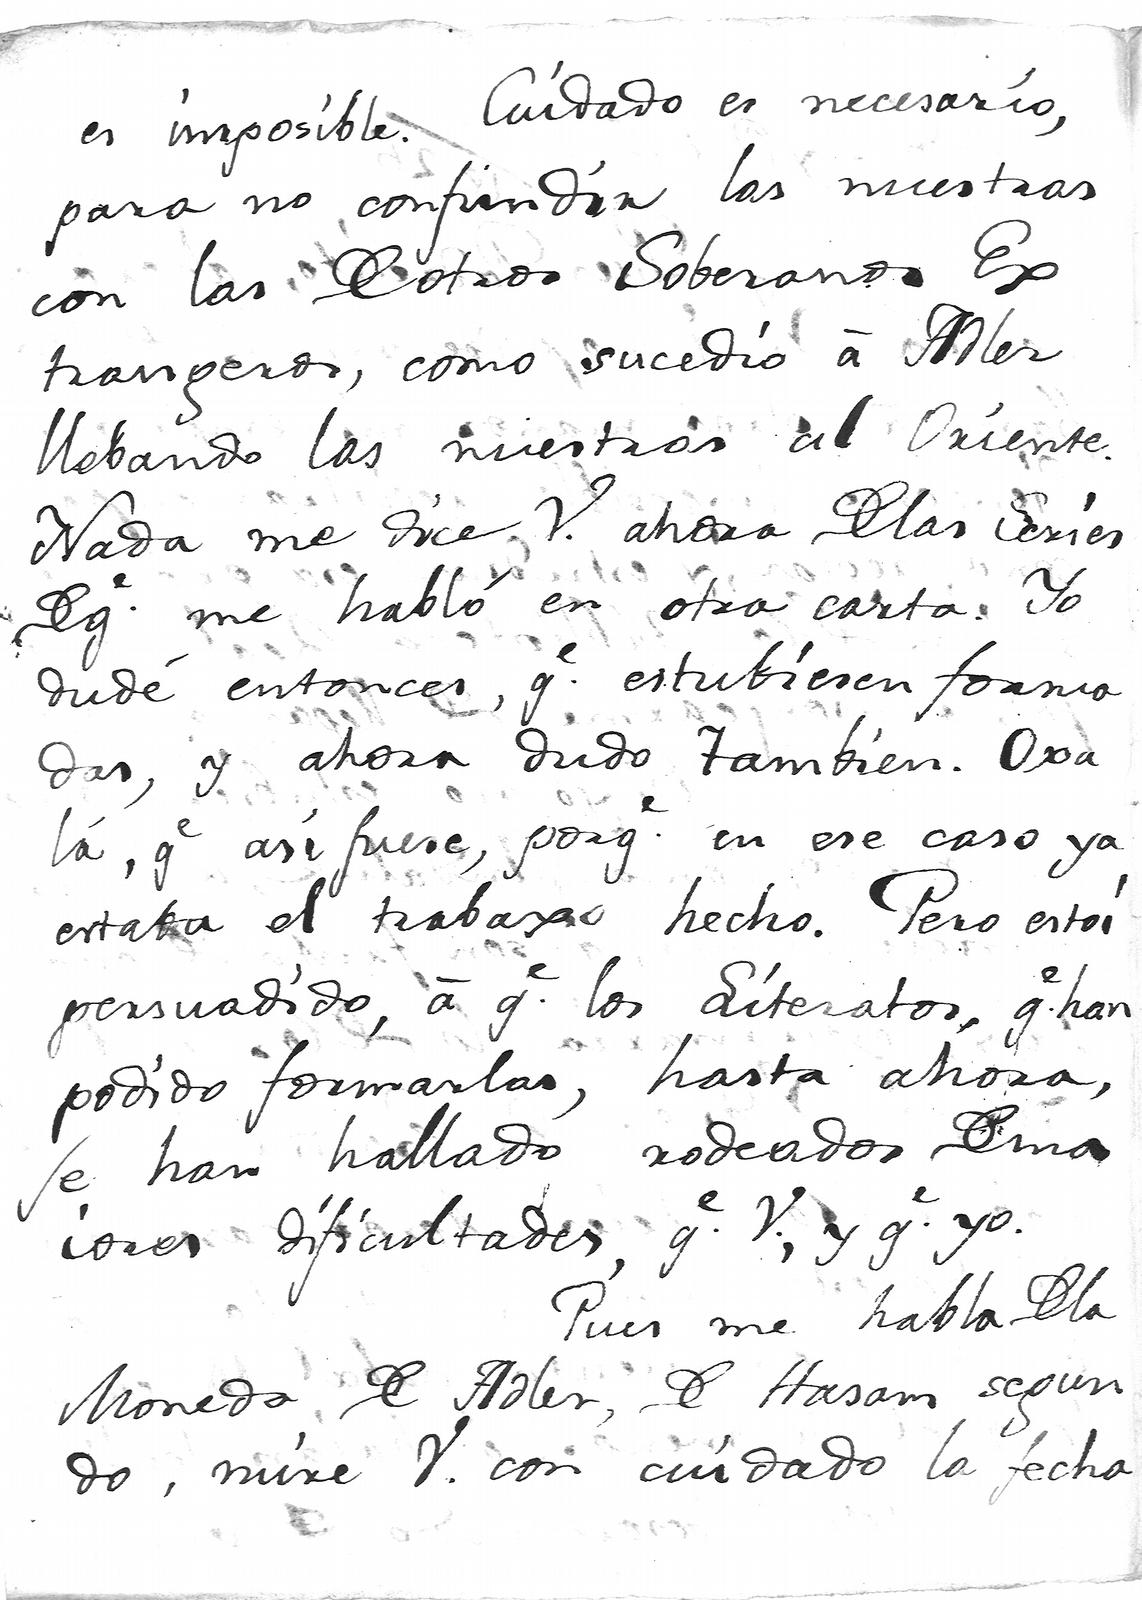 es imposible. Cuidado es necesario,
para no confundir las nuestras
con las De otros Soberanos Ex
trangeros, como sucedio â Adler
llebando las nuestras al Oriente.
Nada me dice V. ahora Delas Series
Deq.e me habló en otra carta. Yo
dudé entonces, q.e estubiesen forma
das, y ahora dudo tambien. Oxa
lá, q.e asi fuese, porq.e en ese caso ya
estaba el trabaxo hecho. Pero estoi
persuadido, â q.e los Literatos, q.e han
podido formarlas, hasta ahora,
se han hallado rodeados Dema
iores dificultades, q.e V., y q.e yo.
Pues me habla Dela
Moneda De Adler, De Hasam segun
do, mire V. con cuidado la fecha